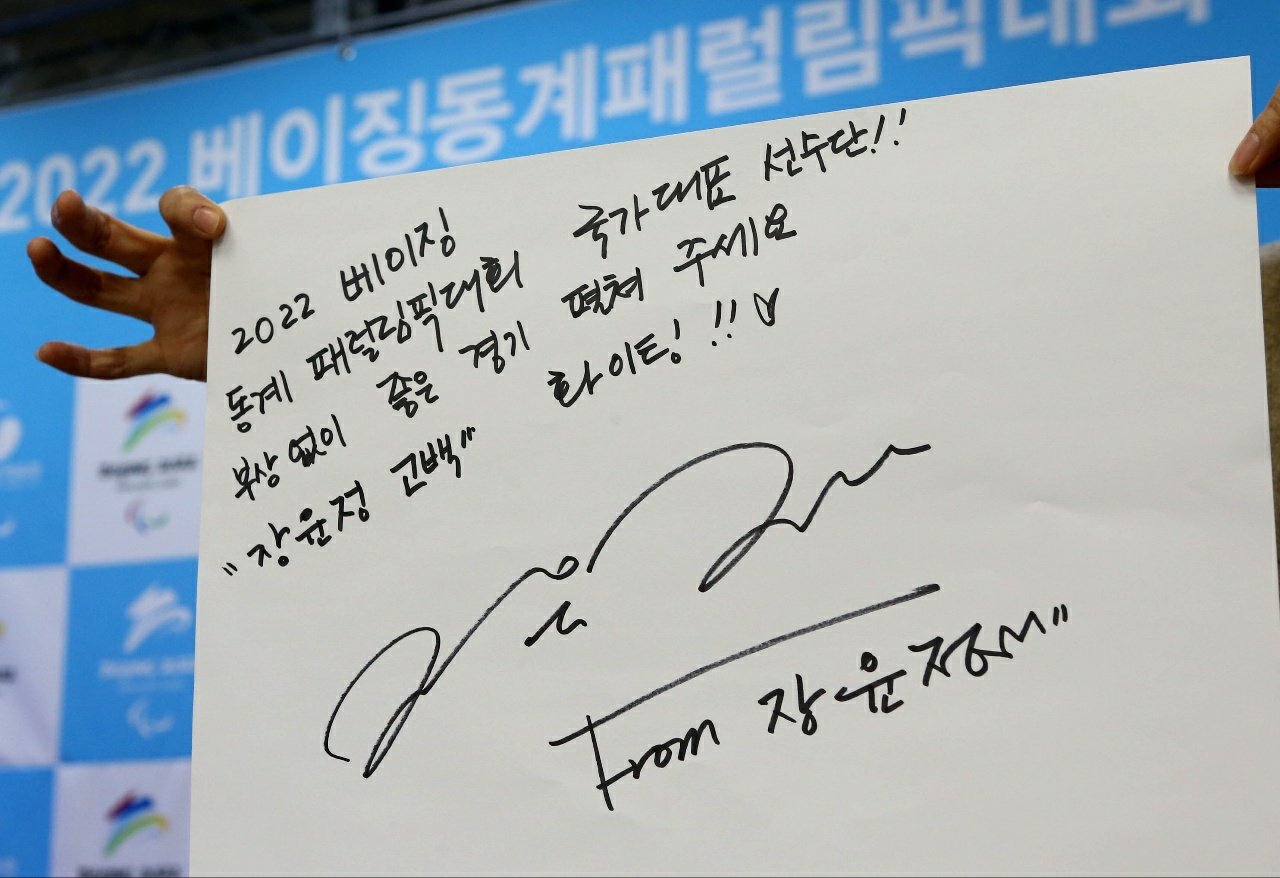 2022 베이징동계패럴림픽대회
2022 베이징
동계 패럴림픽대회 국가대표 선수단!!
부상 없이 좋은 경기 펼쳐 주세요
"장윤정 고백" 화이트! !! ♡
From 장윤정"